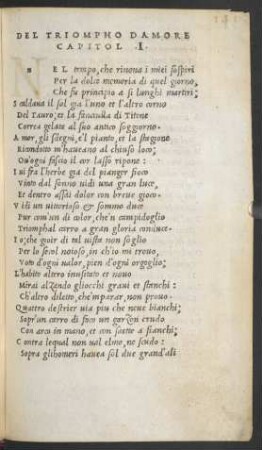 DEL TRIOMPHO DAMORE
CAPITOL .I.
N EL tempo, che rinova i miei sospiri
Per la dolce memoria di quel giorno,
Che fu principio a si lunghi martiri;
S caldava il sol gia l'uno et l'altro corno
Del Tauro; et la fanciulla di Titone
Correa gelata al suo antico soggiorno.
A mor, gli sdegni, e'l pianto, et la stagione
Ricondotto m'haveano al chiuso loco;
Ov'ogni fascio il cor lasso ripone:
I vi fra l'herbe gia del pianger fioco
Vinto dal sonno vidi una gran luce,
Et dentro assai dolor con breve gioco.
V idi un vittorioso & sommo duce
Pur com'un di color, che'n campidoglio
Triomphal carro a gran gloria conduce.
I o; che gioir di tal vista non soglio
Per lo secol noioso, in ch'io mi trovo,
Voto d'ogni valor, pien d'ogni orgoglio;
L'habito altero inusitato et novo
Mirai alzando gliocchi gravi et stanchi:
Ch'altro diletto, che'mparar, non provo.
Quattro destrier via piu che neve bianchi;
Sopr'un carro di foco un garzon crudo
Con arco in mano, et con saette a fianchi;
C ontra lequal non val elmo, ne scudo:
Sopra glihomeri havea sol due grand'ali